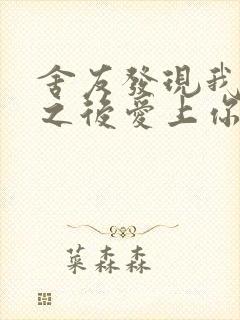 舍友發現我
之後愛上你
菜森森